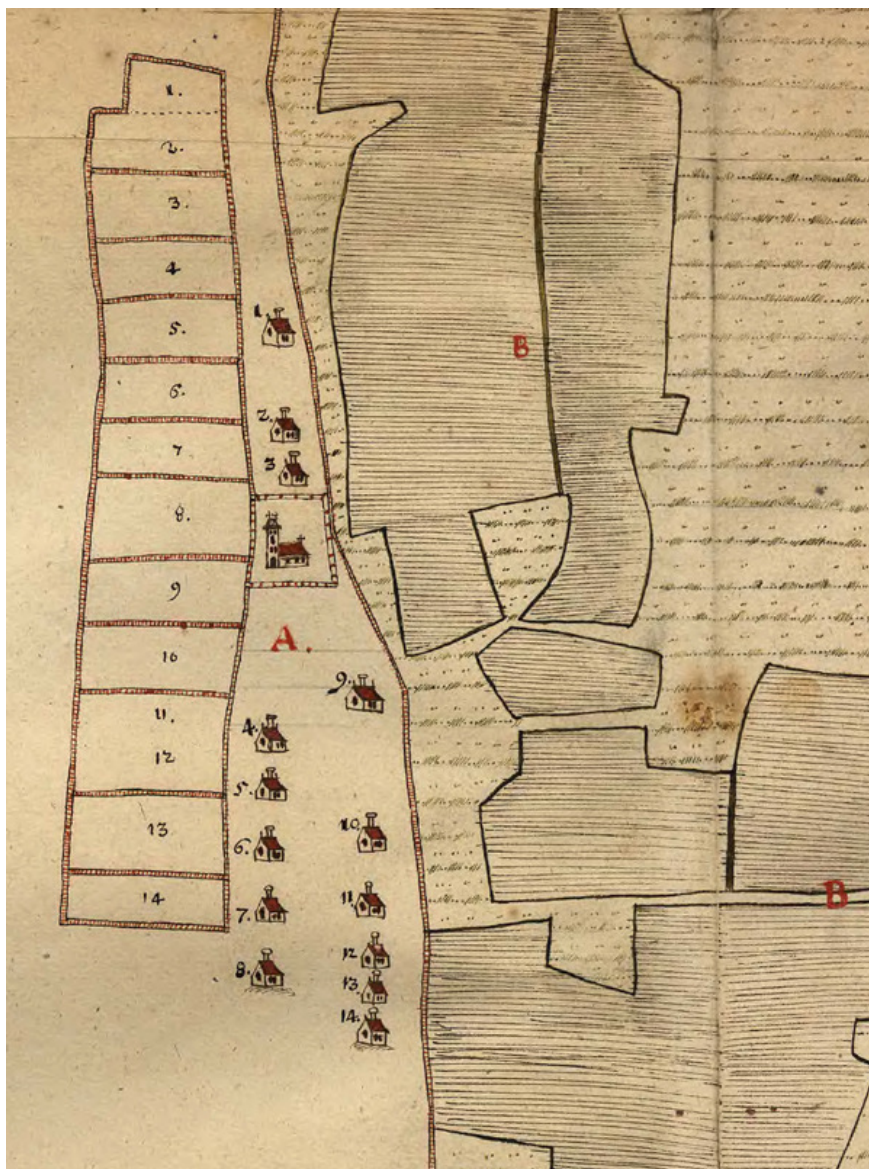 1.
2.
3.
4
5.
6.
7
8.
9
10
11.
12
13
14
1.
2.
3
A.
9.
4.
5.
6.
7.
8.
10.
11.
12
13.
14.
B
B